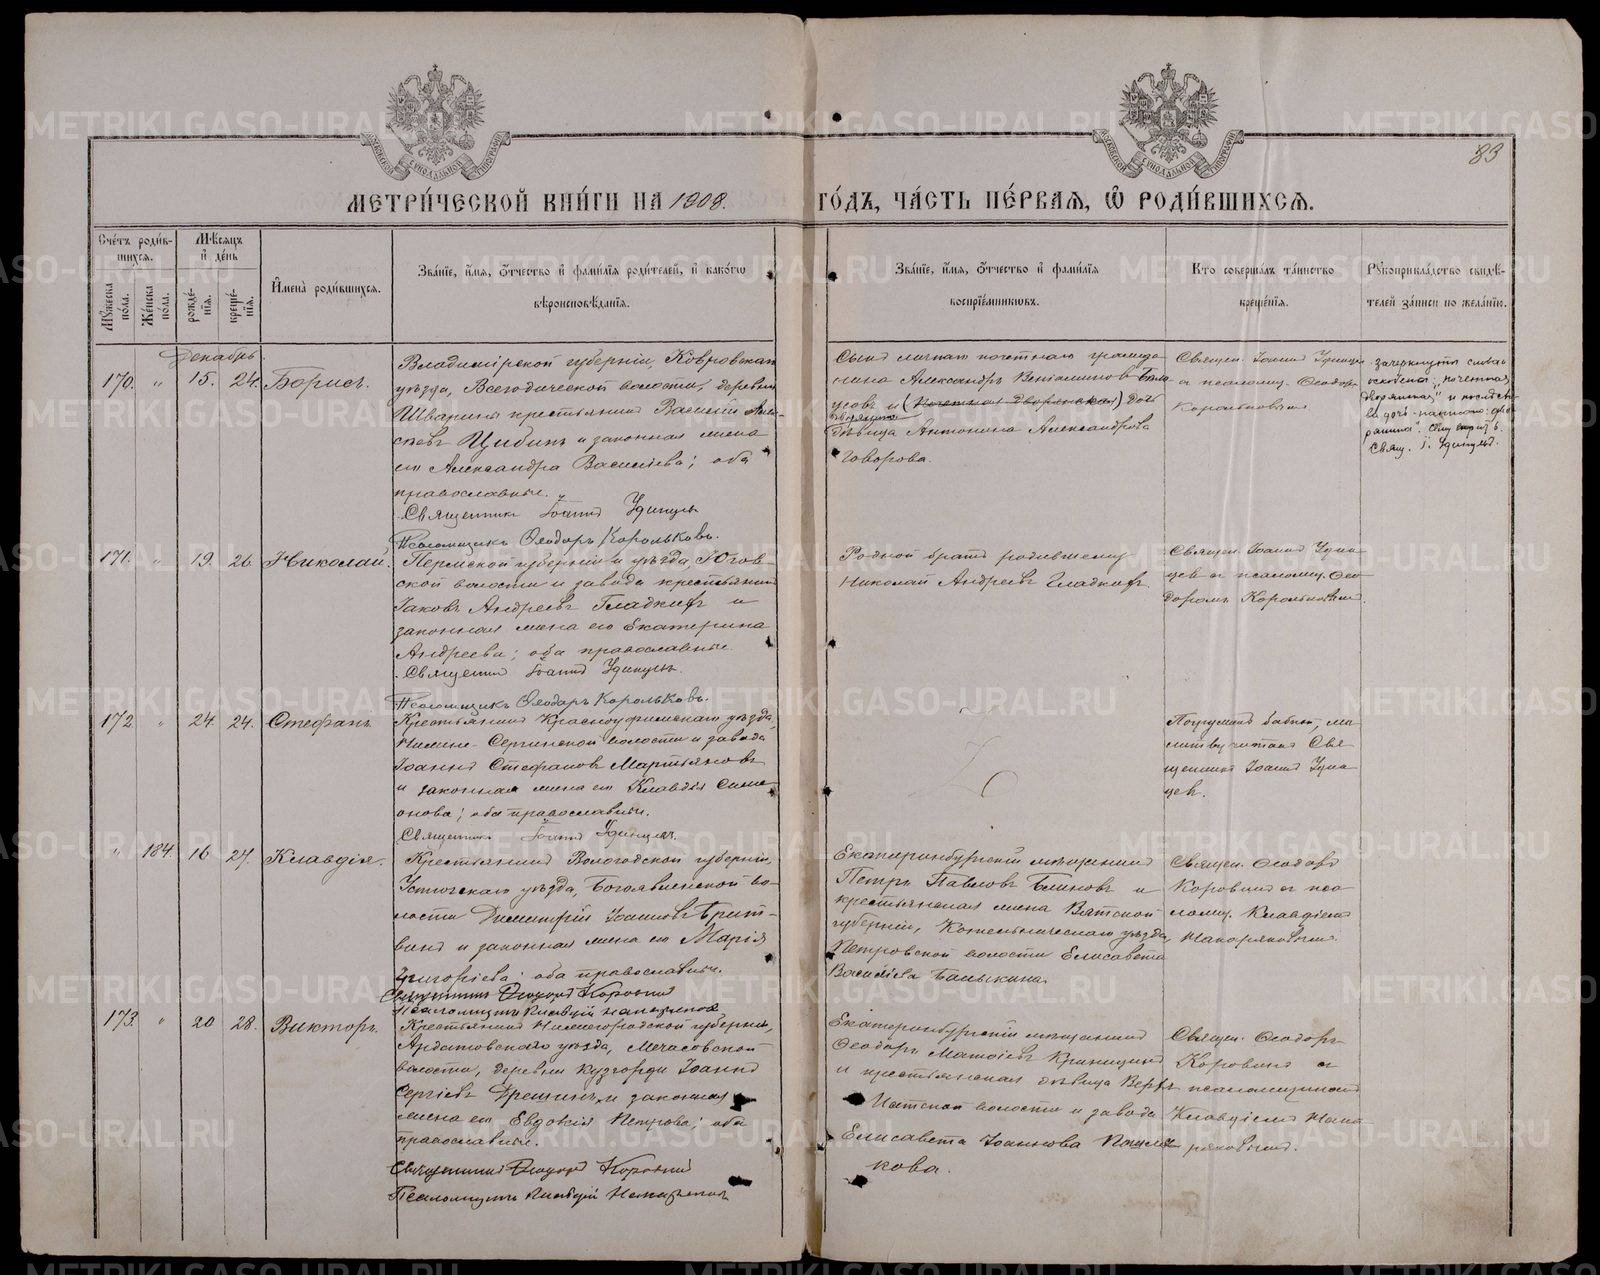 83
МЕТРИ́ЧЕСКОЙ КНИ́ГИ НА 1908. ГО́ДЪ, ЧА́СТЬ ПЕ́РВАЯ, Ѽ РОДИ́ВШИХСЯ.
Сче́тъ роди́в-
шихся.
Мꙋ́жеска
пола.
Же́нска
пола.
Мѣ́сяцъ
и҆ де́нь
рожде́-
нїя.
креще́-
нїя.
И҆мена̀ роди́вшихся.
Зва́нїе, и҆́мя, ѻ҆́тчество и҆ фами́лїя роди́телей, и҆ како́гѡ
вѣроисповѣ́данїя.
Зва́нїе, и҆́мя, ѻ҆́тчество и҆ фами́лїя
воспрїе́мниковъ.
Кто̀ соверша́лъ та́инство
креще́нїя.
Рꙋкоприкла́дство свидѣ́-
телей за́писи по жела́нїю.
Декабрь.
170. " 15. 24. Борисъ.
Владимірской губерніи, Ковровскаго
уѣзда, Всегодической волости, деревни
крестьянинъ Василій Алек-
сѣевъ Цибинъ и законная жена
его Александра Васильева; оба
православные.
Священникъ Іоаннъ Удинцевъ
Псаломщикъ Ѳеодоръ Корольковъ.
Сынъ личнаго почетнаго гражда-
нина Александръ Веніаминовъ
и (почетная дворянская) дочь
дѣвица Антонина Александрова
Говорова.
Священ. Іоаннъ Удинцев
с псаломщ. Ѳеодоро
Корольковымъ
зачеркнуты слова
"почетная
дворянская" и
Свящ. І. Удинцевъ.
171. " 19. 26. Николай.
Пермской губерніи и уѣзда Югов-
ской волости и завода крестьянинъ
Іаковъ Андреевъ Гладкихъ и
законная жена его Екатерина
Андреева; оба православные.
Священникъ Іоаннъ Удинцевъ.
Псаломщикъ Ѳеодоръ Корольковъ.
Родной братъ родившему
Николай Андреевъ Гладкихъ.
Священ. Іоаннъ Удин-
цевъ с псаломщ. Ѳео-
доромъ Корольковымъ.
172. " 24. 24. Стефанъ.
Крестьянинъ Красноуфимскаго уѣзда,
Нижне-Сергинской волости и завода
Іоаннъ Стефановъ Мартьяновъ
и законная жена его Клавдія Симе-
онова; оба православные.
Священникъ Іоаннъ Удинцевъ.
Погружен бабкою, мо-
литву читалъ Свя-
щенникъ Іоаннъ Удин-
цевъ.
" 184. 16 27. Клавдія.
Крестьянинъ Вологодской губерніи,
Устюжскаго уѣзда, Богоявленской во-
лости Димитрій Іоанновъ Брит-
винъ и законная жена его Марія
Григорьева; оба православные.
Священникъ Ѳеодоръ Коровинъ
Псаломщикъ Клавдій Накаряковъ
Екатеринбургскій мѣщанинъ
Петръ Павловъ Блиновъ и
крестьянская жена Вятской
губерніи, Котельническаго уѣзда,
Петровской волости Елисавета
Васильева Балыкина.
Священ. Ѳеодоръ
Коровинъ с пса-
ломщ. Клавдіемъ
Накаряковымъ.
173. " 20 28. Викторъ.
Крестьянинъ Нижегородской губерніи,
Ардатовскаго уѣзда, Мечасовской
волости, деревни Кузгорди Іоаннъ
Сергіевъ и законная
жена его Евдокія Петрова; оба
православные.
Священникъ Ѳеодоръ Коровинъ
Псаломщикъ Клавдій Накаряковъ
Екатеринбургскій мѣщанинъ
Ѳеодоръ Матѳіевъ
и крестьянская дѣвица Верхъ-
Исетской волости и завода
Елисавета Іоаннова
кова.
Священ. Ѳеодоръ
Коровинъ с
псаломщикомъ
Клавдіемъ Нака-
ряковымъ.
METRIKI.GASO-URAL.RU